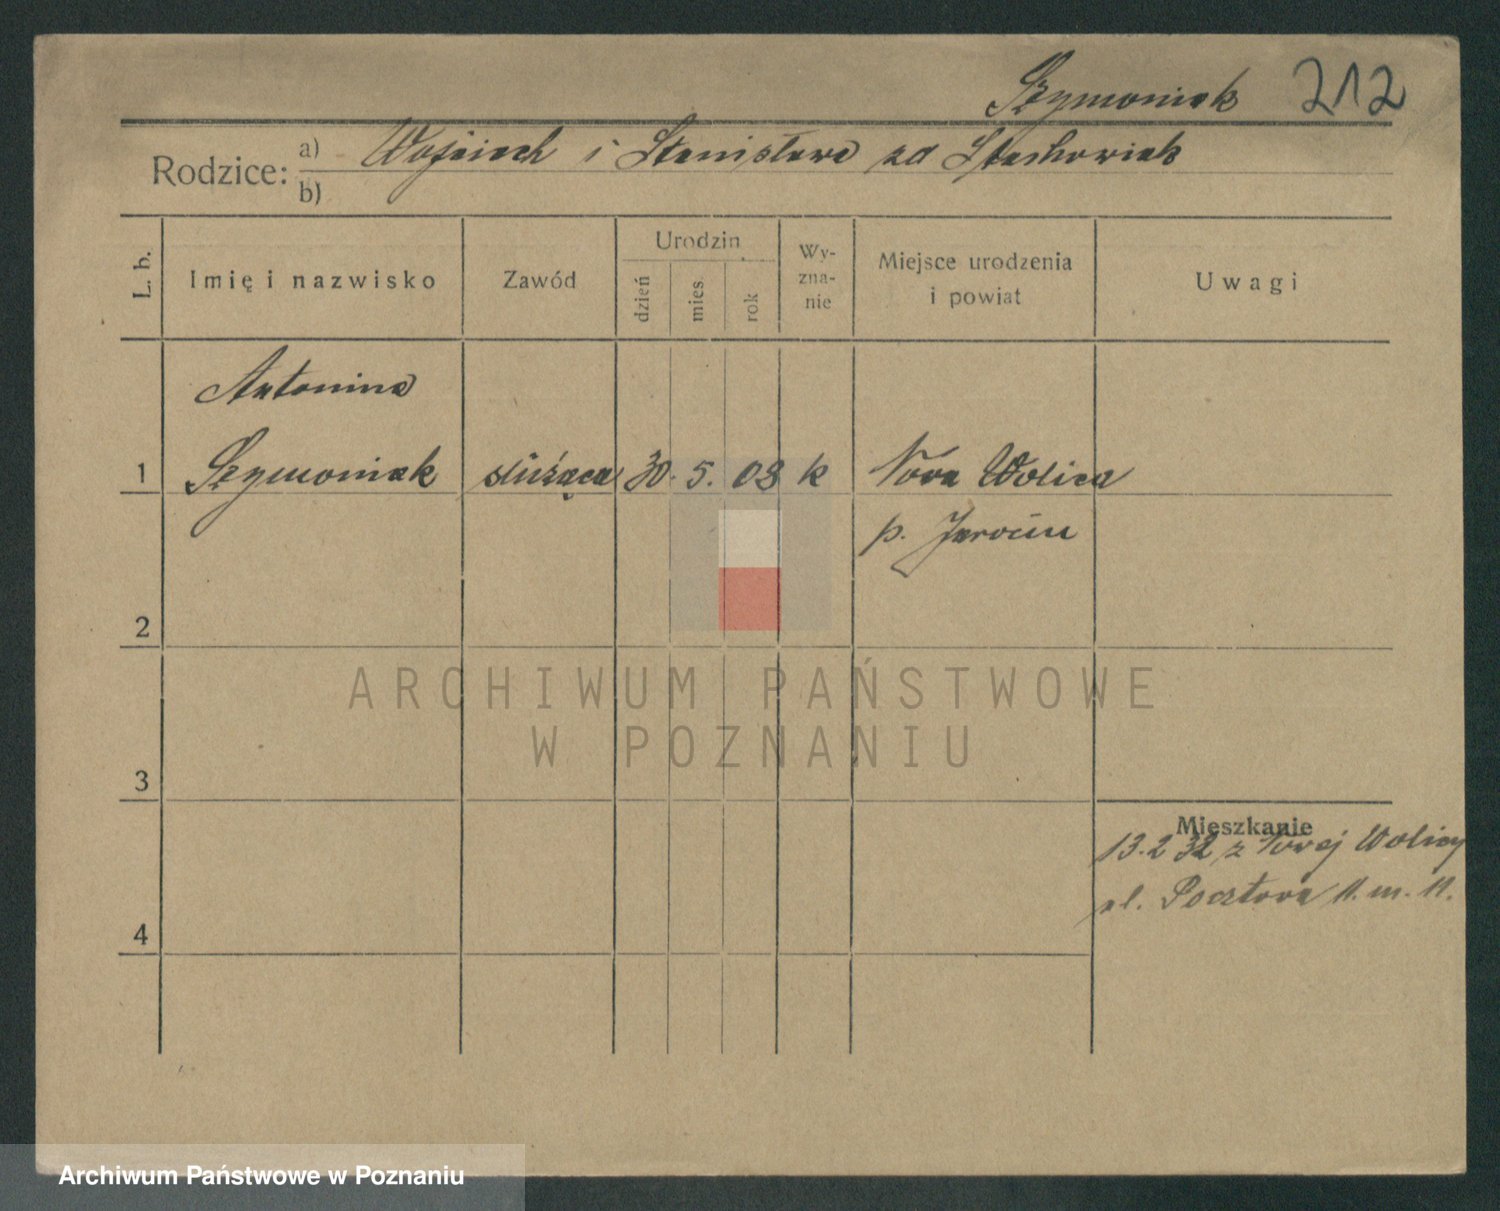 Szymoniak 212
Rodzice: a) Wojciech i Stanisława zd Stachowiak
b)
L. b.
Imię i nazwisko
Zawód
Urodzin
dzień
mies.
rok
Wy-
zna-
nie
Miejsce urodzenia
i powiat
Uwagi
Antonina
1 Szymoniak służąca 30. 5. 08 k Nowa Wolica
p. Jarocin
2
ARCHIWUM PAŃSTWOWE
W POZNANIU
3
Mieszkanie
13.2 32 z Nowej Wolicy
ul. Pocztowa 11. m. 11.
4
Archiwum Państwowe w Poznaniu